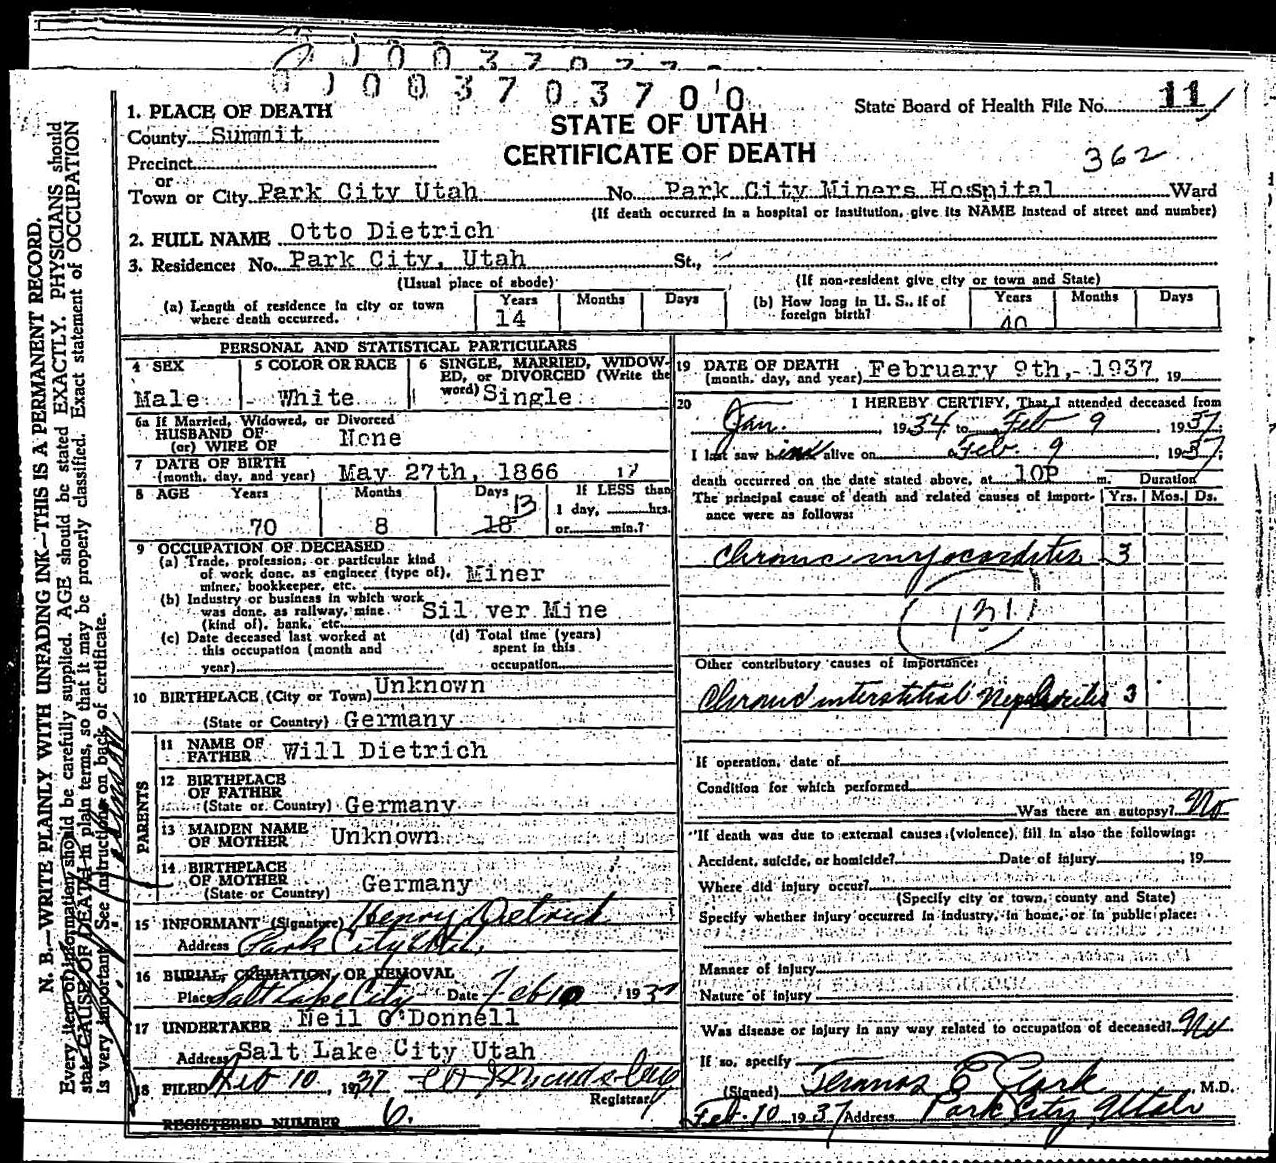 0 J 0 0 3 7 0 3 7 0 0
State Board of Health File No. 11
STATE OF UTAH
CERTIFICATE OF DEATH
362
1. PLACE OF DEATH
County Summit
Precinct
or
Town or City Park City Utah No. Park City Miners Hospital Ward
(If death occurred in a hospital or institution, give its NAME instead of street and number)
2. FULL NAME Otto Dietrich
3. Residence: No. Park City, Utah St.,
(Usual place of abode) (If non-resident give city or town and State)
(a) Length of residence in city or town where death occurred. Years 14 Months Days
(b) How long in U. S., if of foreign birth? Years 40 Months Days
PERSONAL AND STATISTICAL PARTICULARS
4 SEX Male
5 COLOR OR RACE White
6 SINGLE, MARRIED, WIDOWED, or DIVORCED (Write the word) Single
6a If Married, Widowed, or Divorced
HUSBAND OF
(or) WIFE OF None
7 DATE OF BIRTH
(month, day, and year) May 27th, 1866
8 AGE Years 70 Months 8 Days 18 13
If LESS than
1 day, hrs.
or min.?
9 OCCUPATION OF DECEASED
(a) Trade, profession, or particular kind
of work done, as engineer (type of), Miner
miner, bookkeeper, etc.
(b) Industry or business in which work
was done, as railway, mine Sil ver Mine
(kind of), bank, etc.
(c) Date deceased last worked at
this occupation (month and
year)
(d) Total time (years)
spent in this
occupation
10 BIRTHPLACE (City or Town) Unknown
(State or Country) Germany
PARENTS
11 NAME OF
FATHER Will Dietrich
12 BIRTHPLACE
OF FATHER
(State or Country) Germany
13 MAIDEN NAME
OF MOTHER Unknown
14 BIRTHPLACE
OF MOTHER
(State or Country) Germany
15 INFORMANT (Signature) Henry Dietrich
Address Park City Utah.
16 BURIAL, CREMATION, OR REMOVAL
Place Salt Lake City Date Feb 10 1937
17 UNDERTAKER Neil O'Donnell
Address Salt Lake City Utah
18 FILED Feb 10, 1937
Registrar
REGISTERED NUMBER 6.
19 DATE OF DEATH
(month, day, and year) February 9th, 1937, 19
20 I HEREBY CERTIFY, That I attended deceased from
Jan. , 1934 to Feb 9 1937;
I last saw him alive on Feb. 9 1937;
death occurred on the date stated above, at 10P m. Duration
The principal cause of death and related causes of import-
ance were as follows: Yrs. Mos. Ds.
Chronic myocarditis 3
131
Other contributory causes of importance:
Chronic interstitial Nephritis 3
If operation, date of
Condition for which performed
Was there an autopsy? No
If death was due to external causes (violence), fill in also the following:
Accident, suicide, or homicide? Date of injury , 19
Where did injury occur?
(Specify city or town, county and State)
Specify whether injury occurred in industry, in home, or in public place:
Manner of Injury
Nature of injury
Was disease or injury in any way related to occupation of deceased? No
If so, specify
(Signed) Thomas E Clark, M.D.
Feb. 10 1937 Address Park City, Utah
N. B.—WRITE PLAINLY WITH UNFADING INK—THIS IS A PERMANENT RECORD.
Every item of information should be carefully supplied. AGE should be stated EXACTLY. PHYSICIANS should
state CAUSE OF DEATH in plain terms, so that it may be properly classified. Exact statement of OCCUPATION
is very important. See instructions on back of certificate.